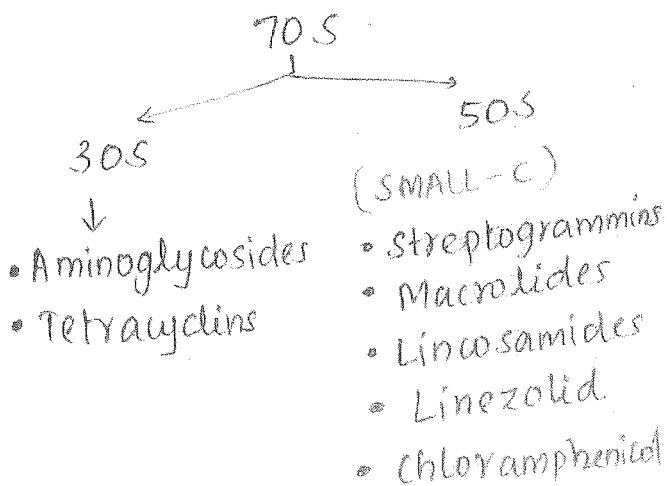 70S
30S
• Aminoglycosides
• Tetracyclins
50S
(SMALL-C)
• Streptogrammins
• Macrolides
• Lincosamides
• Linezolid.
• Chloramphenicol